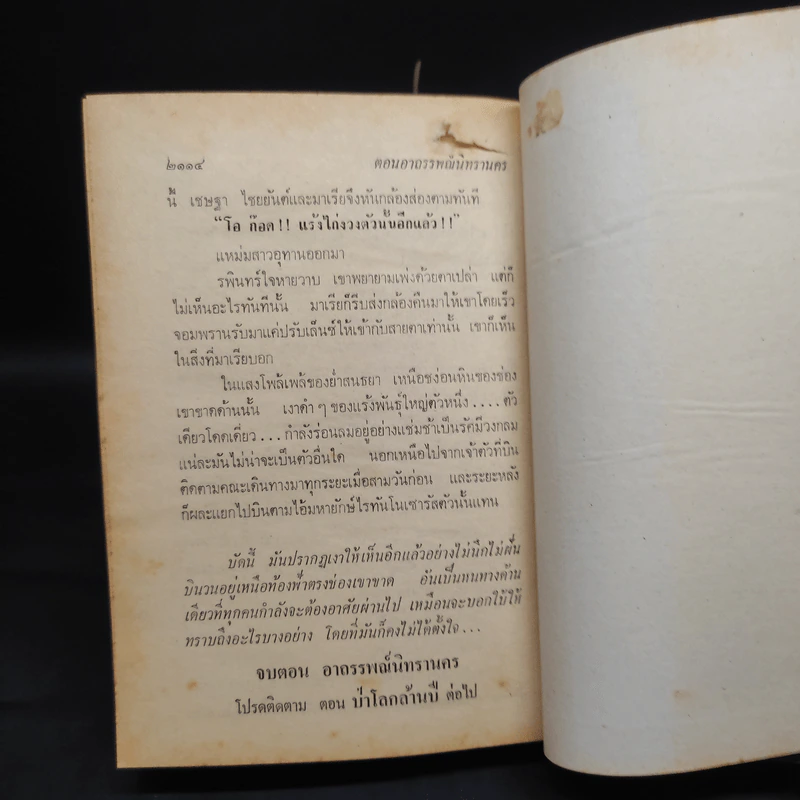 ๒๑๑๔ ตอนอาถรรพณ์นิทรานคร
นี้ เชษฐา ไชยยันต์และมาเรียจึงหันกล้องส่องตามทันที
“โอ ก๊อด!! แร้งไก่งวงตัวนั้นอีกแล้ว!!”
แหม่มสาวอุทานออกมา
รพินทร์ใจหายวาบ เขาพยายามเพ่งด้วยตาเปล่า แต่ก็
ไม่เห็นอะไรทันทีนั้น มาเรียก็รีบส่งกล้องคืนมาให้เขาโดยเร็ว
จอมพรานรับมาแค่ปรับเล็นซ์ให้เข้ากับสายตาเท่านั้น เขาก็เห็น
ในสิ่งที่มาเรียบอก
ในแสงโพล้เพล้ของย่ำสนธยา เหนือชง่อนหินของช่อง
เขาขาดด้านนั้น เงาดำ ๆ ของแร้งพันธุ์ใหญ่ตัวหนึ่ง....ตัว
เดียวโดดเดี่ยว...กำลังร่อนลมอยู่อย่างแช่มช้าเป็นรัศมีวงกลม
แน่ละมันไม่น่าจะเป็นตัวอื่นใด นอกเหนือไปจากเจ้าตัวที่บิน
ติดตามคณะเดินทางมาทุกระยะเมื่อสามวันก่อน และระยะหลัง
ก็ผละแยกไปบินตามไอ้มหายักษ์ไรทันโนเซารัสตัวนั้นแทน
บัดนี้ มันปรากฏเงาให้เห็นอีกแล้วอย่างไม่นึกไม่ฝัน
บินวนอยู่เหนือท้องฟ้าตรงช่องเขาขาด อันเป็นหนทางด้าน
เดียวที่ทุกคนกำลังจะต้องอาศัยผ่านไป เหมือนจะบอกใบ้ให้
ทราบถึงอะไรบางอย่าง โดยที่มันก็คงไม่ได้ตั้งใจ...
จบตอน อาถรรพณ์นิทรานคร
โปรดติดตาม ตอน ป่าโลกล้านปี ต่อไป